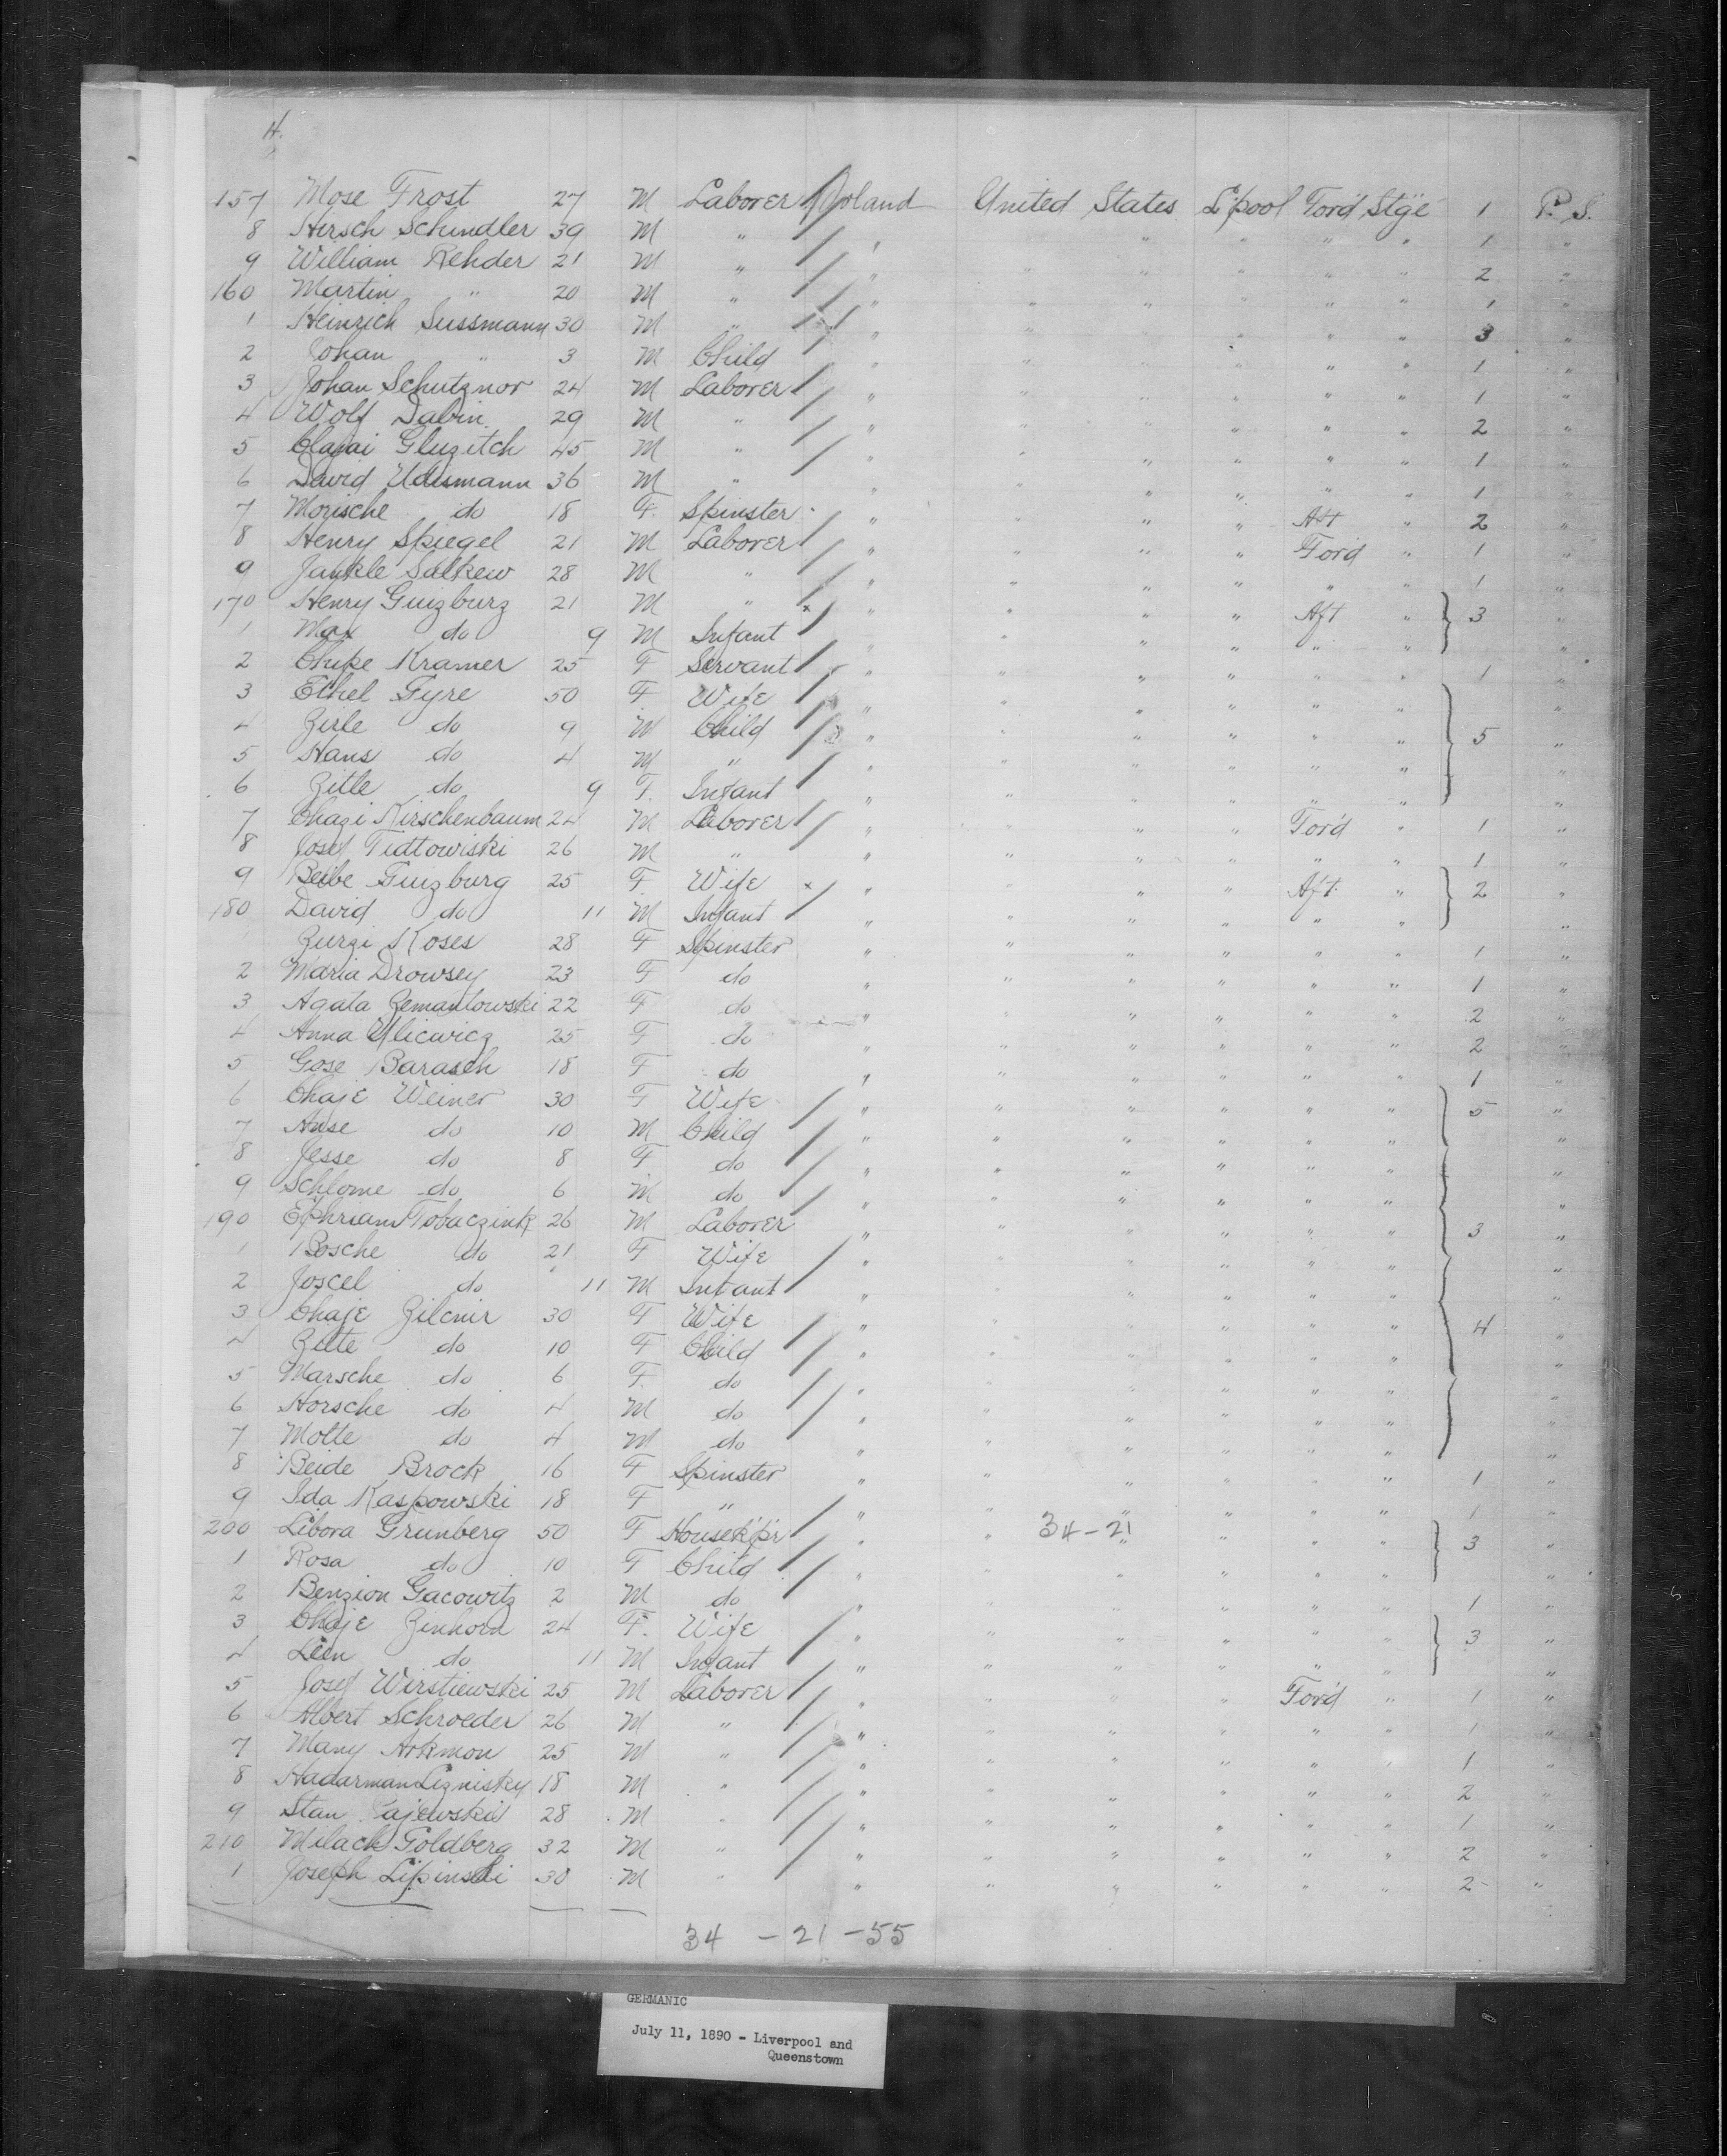 4.
157 Mose Frost 27 M Laborer Poland United States L'pool For'd Stge 1 P. S.
8 Hirsch Schindler 39 M " " " " " " " 1 "
9 William Rehder 21 M " " " " " " " 2 "
160 Martin " 20 M " " " " " " " 1 "
1 Heinrich Sussmann 30 M " " " " " " " 3 "
2 Johan " 3 M Child " " " " " " 1 "
3 Johan Schutznor 24 M Laborer " " " " " " 1 "
4 Wolf Dabin 29 M " " " " " " " 2 "
5 Gluzitch 45 M " " " " " " " 1 "
6 David 36 M " " " " " " " 1 "
7 Morische do 18 F. Spinster " " " " Aft " 2 "
8 Henry Spiegel 21 M Laborer " " " " For'd " 1 "
9 Jankle Salkew 28 M " " " " " " " 1 "
170 Henry Guzburg 21 M " " " " " Aft " 3 "
1 Max do 9 M Infant " " " " " " "
2 Chipe Kramer 25 F Servant " " " " " " 1 "
3 Ethel Fyre 50 F Wife " " " " " " "
4 Zirle do 9 M Child " " " " " " 5 "
5 Hans do 4 M " " " " " " " "
6 Zitle do 9 F. Infant " " " " " " "
7 Chazi Kirschenbaum 24 M Laborer " " " " For'd " 1 "
8 Josef Tidtowiski 26 M " " " " " " " 1 "
9 Beibe Guzburg 25 F. Wife " " " " Aft. " 2 "
180 David do 11 M Infant " " " " " " "
Zurzi Koses 28 F Spinster " " " " " " 1 "
2 Maria Drowsey 23 F do " " " " " " 1 "
3 Agata Zemantowski 22 F do " " " " " " 2 "
4 Anna Ulicwicz 25 F do " " " " " " 2 "
5 Gose Barasch 18 F do " " " " " " 1 "
6 Chaje Weiner 30 F Wife " " " " " " 5 "
7 Anse do 10 M Child " " " " " " "
8 Jesse do 8 F. do " " " " " " "
9 Schlome do 6 M do " " " " " " "
190 Ephriam Tobaczink 26 M Laborer " " " " " " 3 "
1 Bosche do 21 F Wife " " " " " " "
2 Joscel do 11 M Infant " " " " " " "
3 Chaje Zilenir 30 F Wife " " " " " " 4 "
4 Zitte do 10 F Child " " " " " " "
5 Marsche do 6 F. do " " " " " " "
6 Horsche do 4 M do " " " " " " "
7 Motte do 4 M do " " " " " " "
8 Beide Brock 16 F Spinster " " " " " " 1 "
9 Ida Kaspowski 18 F " " " " " " " 1 "
200 Libora Grunberg 50 F Housek'p'r " " 34-21 " " " " 3 "
1 Rosa do 10 F Child " " " " " " "
2 Benzion Gacowitz 2 M do " " " " " " 1 "
3 Chaje Zinhorn 24 F. Wife " " " " " " 3 "
4 Leen do 11 M Infant " " " " " " "
5 Josef Wirstiewski 25 M Laborer " " " " For'd " 1 "
6 Albert Schroeder 26 M " " " " " " " 1 "
7 Many Arkmon 25 M " " " " " " " 1 "
8 Hadarman Liznisky 18 M " " " " " " " 2 "
9 Stan 28 M " " " " " " " 1 "
210 Milach Goldberg 32 M " " " " " " " 2 "
1 Joseph Lipinski 30 M " " " " " " " 2 "
34 - 21 - 55
GERMANIC
July 11, 1890 - Liverpool and
Queenstown